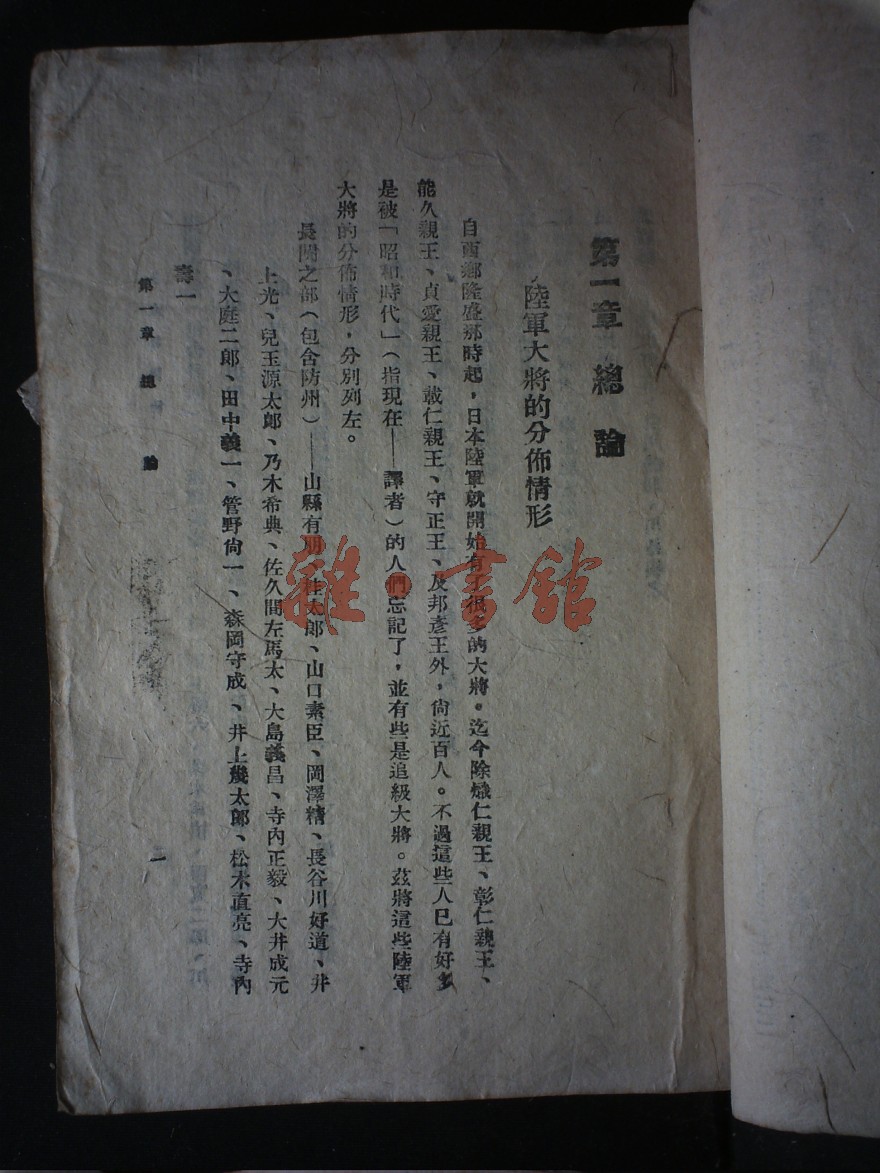 第一章 總論
陸軍大將的分佈情形
自西鄉隆盛那時起，日本陸軍就開始有了很多的大將。迄今除熾仁親王、彰仁親王、
能久親王、貞愛親王、載仁親王、守正王、及邦彥王外，尙近百人。不過這些人已有好多
是被「昭和時代」（指現在——譯者）的人們忘記了，並有些是追級大將。茲將這些陸軍
大將的分佈情形，分別列左。
長閥之部（包含防州）——山縣有朋、桂太郎、山口素臣、岡澤精、長谷川好道、井
上光、兒玉源太郎、乃木希典、佐久間左馬太、大島義昌、寺內正毅、大井成元
、大庭二郎、田中義一、管野尙一、森岡守成、井上幾太郎、松木直亮、寺內
壽一
第一章 總論
一
雜·書館